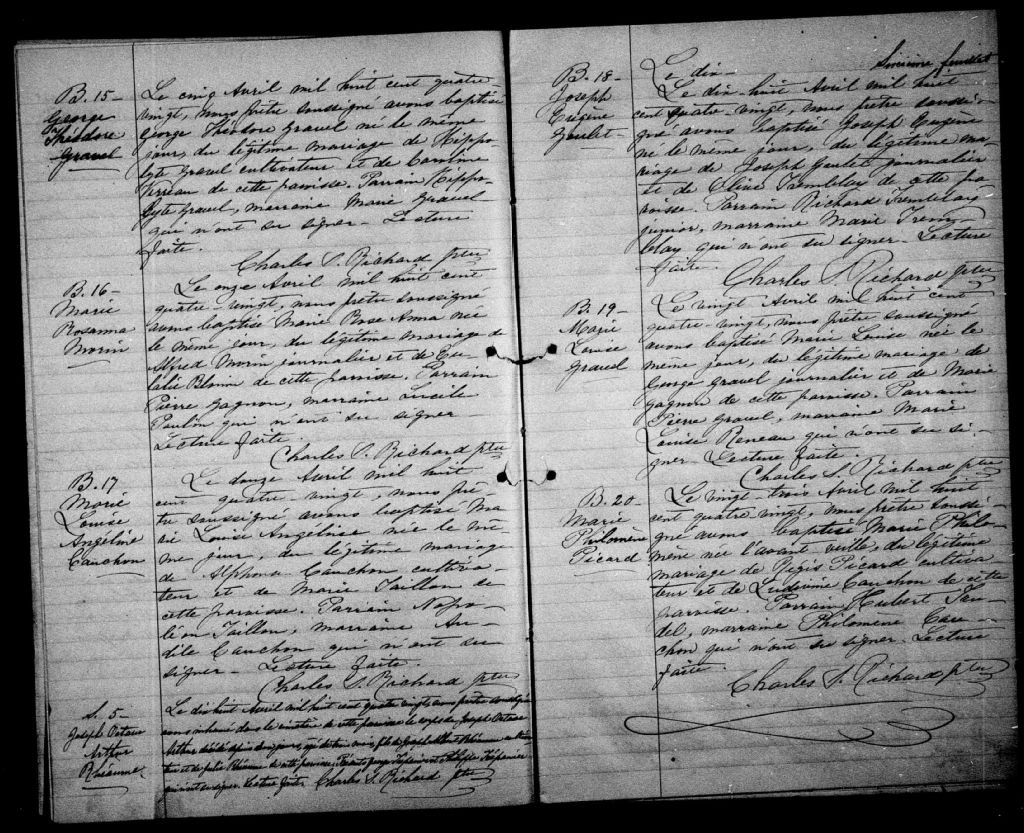 B. 15-
George
Théodore
Gravel
Le cinq Avril mil huit cent quatre
vingt, nous prêtre soussigné avons baptisé
George Théodore Gravel né le même
jour, du légitime mariage de Hippo-
lyte Gravel cultivateur et de Caroline
de cette paroisse. Parrain Hippo-
lyte Gravel, marraine Marie Gravel
qui n'ont su signer. Lecture
faite.
Charles S. Richard ptre
B. 16-
Marie
Rosanna
Morin
Le onze Avril mil huit cent
quatre-vingt, nous prêtre soussigné
avons baptisé Marie Rose Anna née
le même jour, du légitime mariage de
Alfred Morin journalier et de Eu-
lalie Blouin de cette paroisse. Parrain
Pierre Gagnon, marraine
qui n'ont su signer
Lecture faite.
Charles S. Richard ptre
B. 17
Marie
Louise
Angéline
Cauchon
Le douze Avril mil huit
cent quatre-vingt, nous prê-
tre soussigné avons baptisé Ma-
rie Louise née le mê-
me jour, du légitime mariage
de Alphonse Cauchon cultiva-
teur et de Marie Taillon de
cette paroisse. Parrain Napo-
léon Taillon, marraine
Cauchon qui n'ont su
signer. Lecture faite.
Charles S. Richard ptre
S. 5-
Joseph Octave
Arthur
Rhéaume
Le dix huit Avril mil huit cent quatre vingt nous prêtre soussigné
avons inhumé dans le cimetière de cette paroisse le corps de Joseph Octave
Arthur, décédé
et de Rhéaume de cette paroisse.
qui n'ont su signer. Lecture faite. Charles S. Richard ptre
B. 18-
Joseph
Eugène
Goulet-
Le dix-
Le dix-huit Avril mil huit
cent quatre-vingt, nous prêtre soussi-
gné avons baptisé Joseph Eugène
né le même jour, du légitime ma-
riage de Joseph Goulet journalier
et de Olive Tremblay de cette pa-
roisse. Parrain Richard Tremblay
junior, marraine Marie Trem-
blay qui n'ont su signer. Lecture
faite.
Charles S. Richard ptre
B. 19-
Marie
Louise
Gravel
Le vingt Avril mil huit cent
quatre-vingt, nous prêtre soussigné
avons baptisé Marie Louise née le
même jour, du légitime mariage de
George Gravel journalier et de Marie
Gagnon de cette paroisse. Parrain
Pierre Gravel, marraine Marie
Louise qui n'ont su si-
gner. Lecture faite.
Charles S. Richard ptre
B. 20-
Marie
Philomène
Picard
Le vingt-trois Avril mil huit
cent quatre vingt, nous prêtre soussi-
gné avons baptisé Marie Philo-
mène née l'avant veille, du légitime
mariage de Régis Picard cultiva-
teur et de Ludivine Cauchon de cette
paroisse. Parrain Hubert
marraine Philomène Cau-
chon qui n'ont su signer. Lecture
faite.
Charles S. Richard ptre